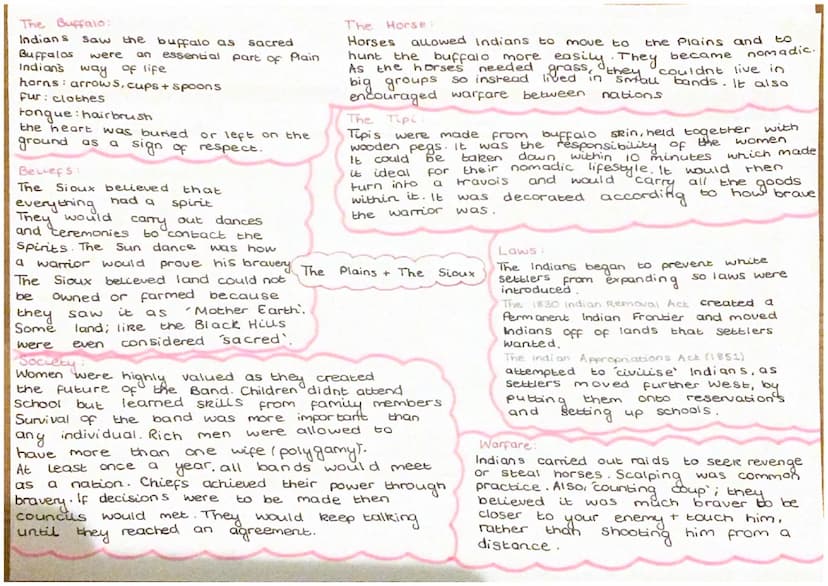 The Buffalo:
Indians saw the buffalo as sacred
Buffalos were an essential part of Plain
Indian's way of life
horns: arrows, cups + spoons
fur: clothes
tongue: hairbrush
the heart was buried or left on the
ground as a sign of respect.
The Horse:
Horses allowed Indians to move to the Plains and to
hunt the buffalo more easily. They became nomadic.
As the horses needed grass, they couldnt live in
big groups so instead lived in small bands. It also
encouraged warfare between nations
The Tipi:
Tipis were made from buffalo skin, held together with
wooden pegs. It was the responsibility of the women
It could be taken down within 10 minutes which made
it ideal for their nomadic lifestyle. It would then
turn into a travois and would carry all the goods
within it. It was decorated according to how brave
the warrior was.
Beliefs:
The Sioux believed that
everything had a spirit
They would carry out dances
and ceremonies to contact the
spirits. The Sun dance was how
a warrior would prove his bravery
The Sioux believed land could not
be owned or farmed because
they saw it as 'Mother Earth'.
Some land; like the Black Hills
were even considered 'sacred'.
The Plains + The Sioux
Laws:
The Indians began to prevent white
settlers from expanding so laws were
introduced.
The 1830 Indian Removal Act created a
Permanent Indian Frontier and moved
Indians off of lands that settlers
wanted.
The Indian Appropriations Act (1851)
attempted to 'civilise' Indians, as
settlers moved further West, by
putting them onto reservations
and setting up schools.
Society:
Women were highly valued as they created
the future of the Band. Children didnt attend
school but learned skills from family members
Survival of the band was more important than
any individual. Rich men were allowed to
have more than one wife (polygamy).
At least once a year, all bands would meet
as a nation. Chiefs achieved their power through
bravery. If decisions were to be made then
councils would met. They would keep talking
until they reached an agreement.
Warfare:
Indians carried out raids to seek revenge
or steal horses. Scalping was common
practice. Also, 'counting coup'; they
believed it was much braver to be
closer to your enemy + touch him,
rather than shooting him from a
distance.